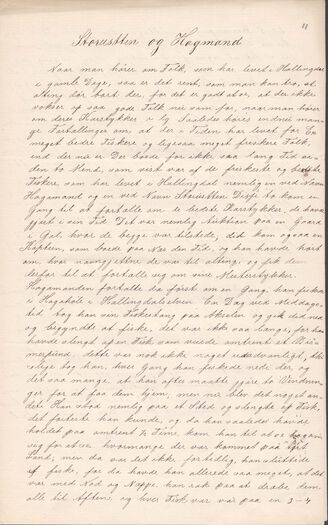 11
Storustten og Hagmand
Naar man hører om Folk, som har levet i Hallingdal
i gamle Dage, saa er det rent, som man kan tro, at
alting dør bort der, for det er godt stor, at der ikke
vokser op saa gode Folk nu som før, naar man hører
om deres Karstykker i by. Saaledes høres endnu man-
ge Fortællinger om, at der i Tiden har levet for En
meget bedre Fiskere og ligesaa meget friskere Folk,
end der nu er. Der boede for ikke saa lang Tid si-
den to Mænd, som vist var af de friskeste og bedste
Fiskere, som har levet i Hallingdal nemlig en ved Navn
Hagamand og en ved Navn Storustten. Disse to kom en
Gang til at fortælle om de bedste Karstykker, de havde
gjort i sin Tid. Det var nemlig Auktion paa en Gaard
i Gol, hvor de begge var tilstede, did kom ogsaa en
Kaptein, som boede paa Nes den Tid, og han havde hørt
om, hvor navngjetne de var til alting, og fik dem
derfor til at fortælle sig om sine Mesterstykker.
Hagamanden fortalte da først om en Gang, han fiskede
i Hagahøle i Hallingdalselven. En Dag ved Middags-
tid tog han sin Fiskestang paa Akselen og gik did ned
og begyndte at fiske, det var ikke saa længe, før han
havde slængt op en Fisk som veiede omtrent et Bis-
merpund, dette var nok ikke noget usædvanligt,
slige tog han, hver Gang han fiskede nede der, og
det saa mange, at han ofte maatte gjøre to Vendnin-
ger for at faa dem hjem, men nu blev det noget an-
det. Han stod nemlig paa et Sted og slængte op Fisk
det forteste han kunde, og da han saaledes havde
holdt paa omtrent en Time, kom han til at se bagom
sig for at se, hvormange der var kommet paa tørt
Land, men da var det ikke forbillig, han sluttede
af fiske, for da havde han allerede saa meget, at det
var med Nød og Neppe, han rak paa at dræbe dem
alle til Aften, og hver Fisk var vær paa en 3-4